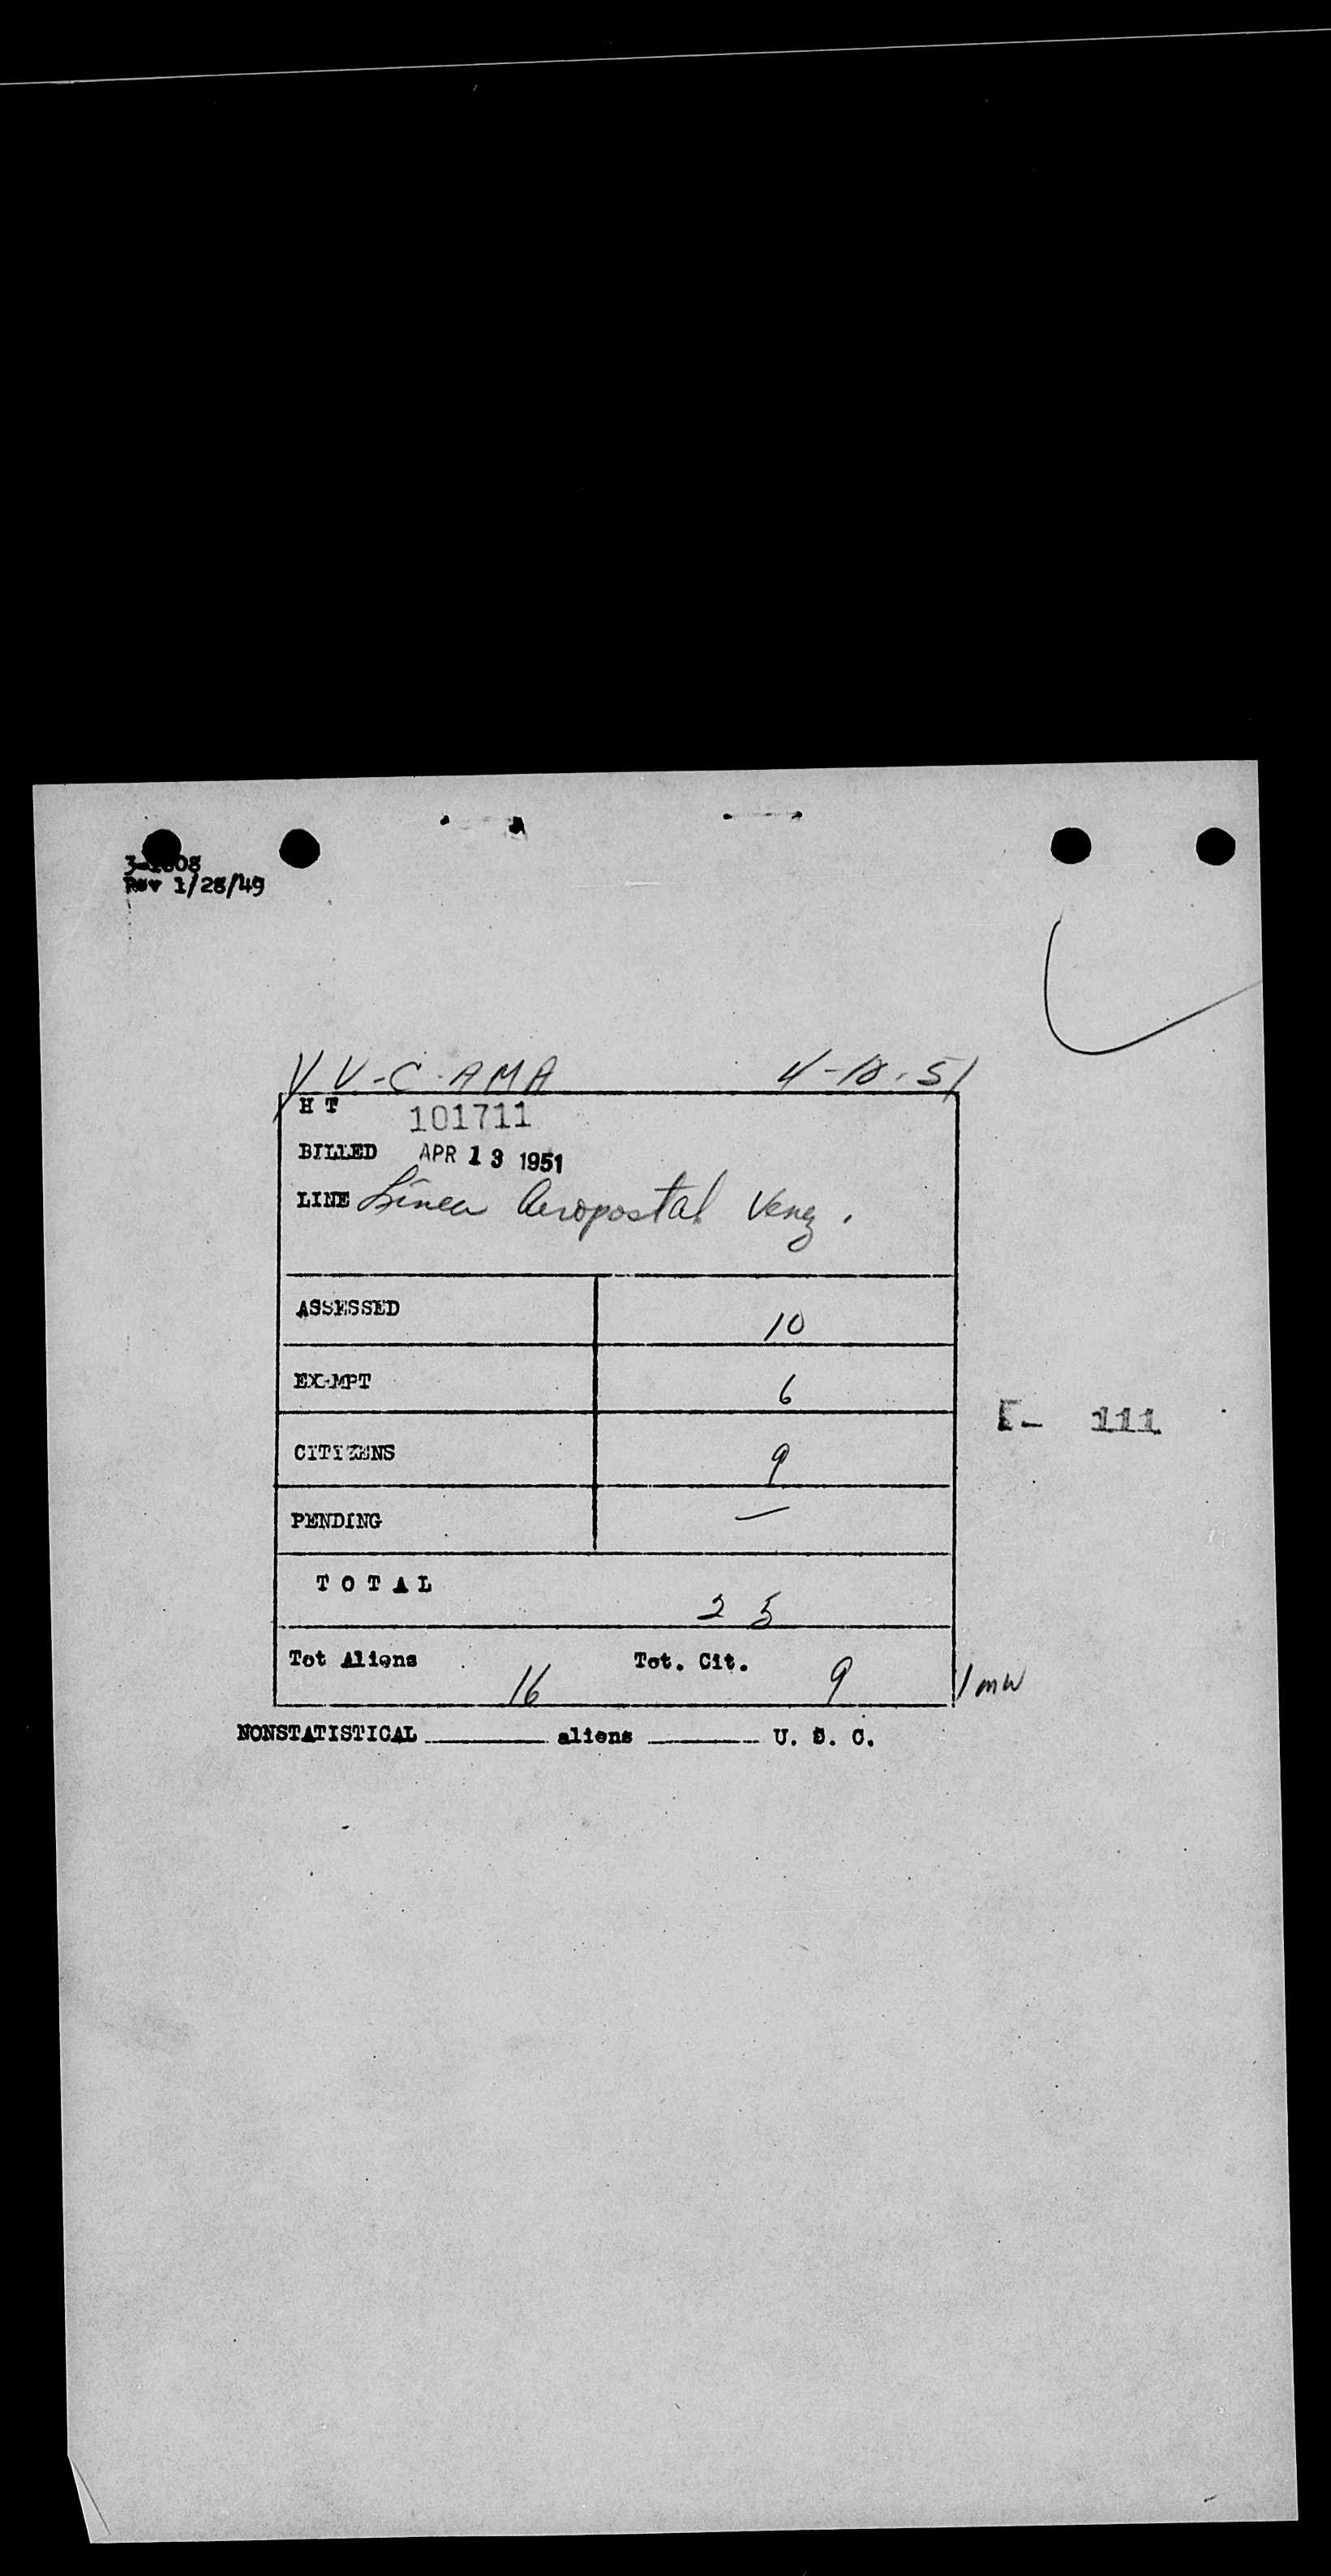 Rev 1/28/49
YV-C-AMA 4-18-51
H T 101711
BILLED APR 13 1951
LINE Linea Aeropostal Venez.
ASSESSED 10
EXEMPT 6
CITIZENS 9
E- 111
PENDING —
TOTAL 25
Tot Aliens 16 Tot. Cit. 9 /mw
NONSTATISTICAL ______ aliens ______ U. S. C.